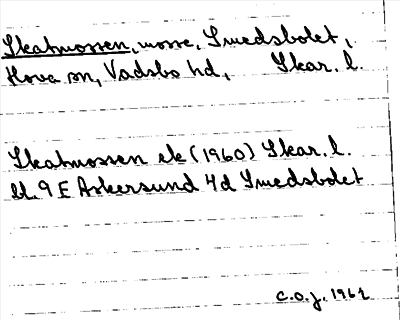 Skatmossen, mosse, Smedsbolet,
Hova sn, Vadsbo hd, Skar. l.
Skatmossen ek (1960) Skar. l.
bl. 9 E Askersund 4d Smedsbolet
C.O.J. 1961